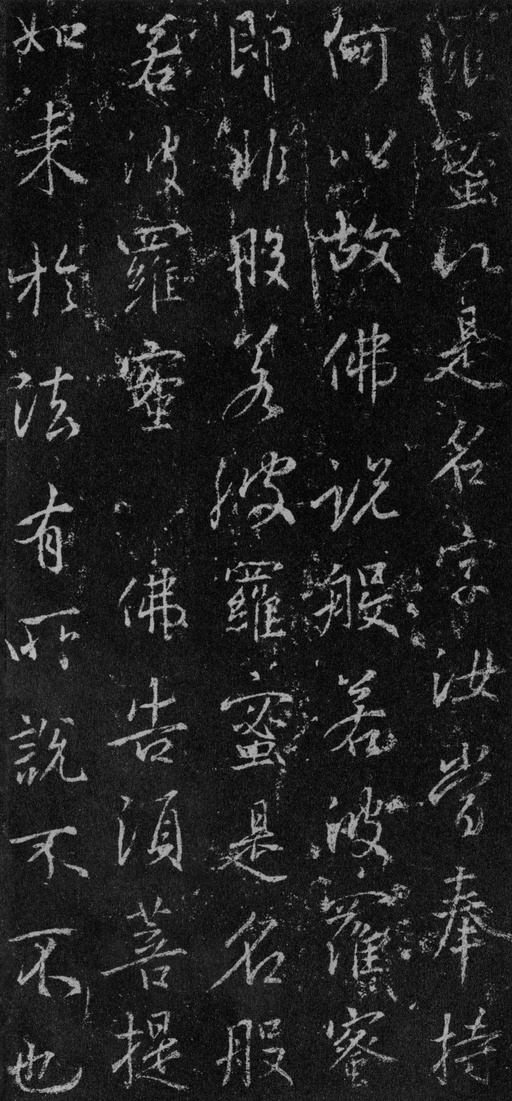 羅蜜以是名字汝當奉持
何以故佛説般若波羅蜜
即非般若波羅蜜是名般
若波羅蜜佛告須菩提
如来於法有所說不不也